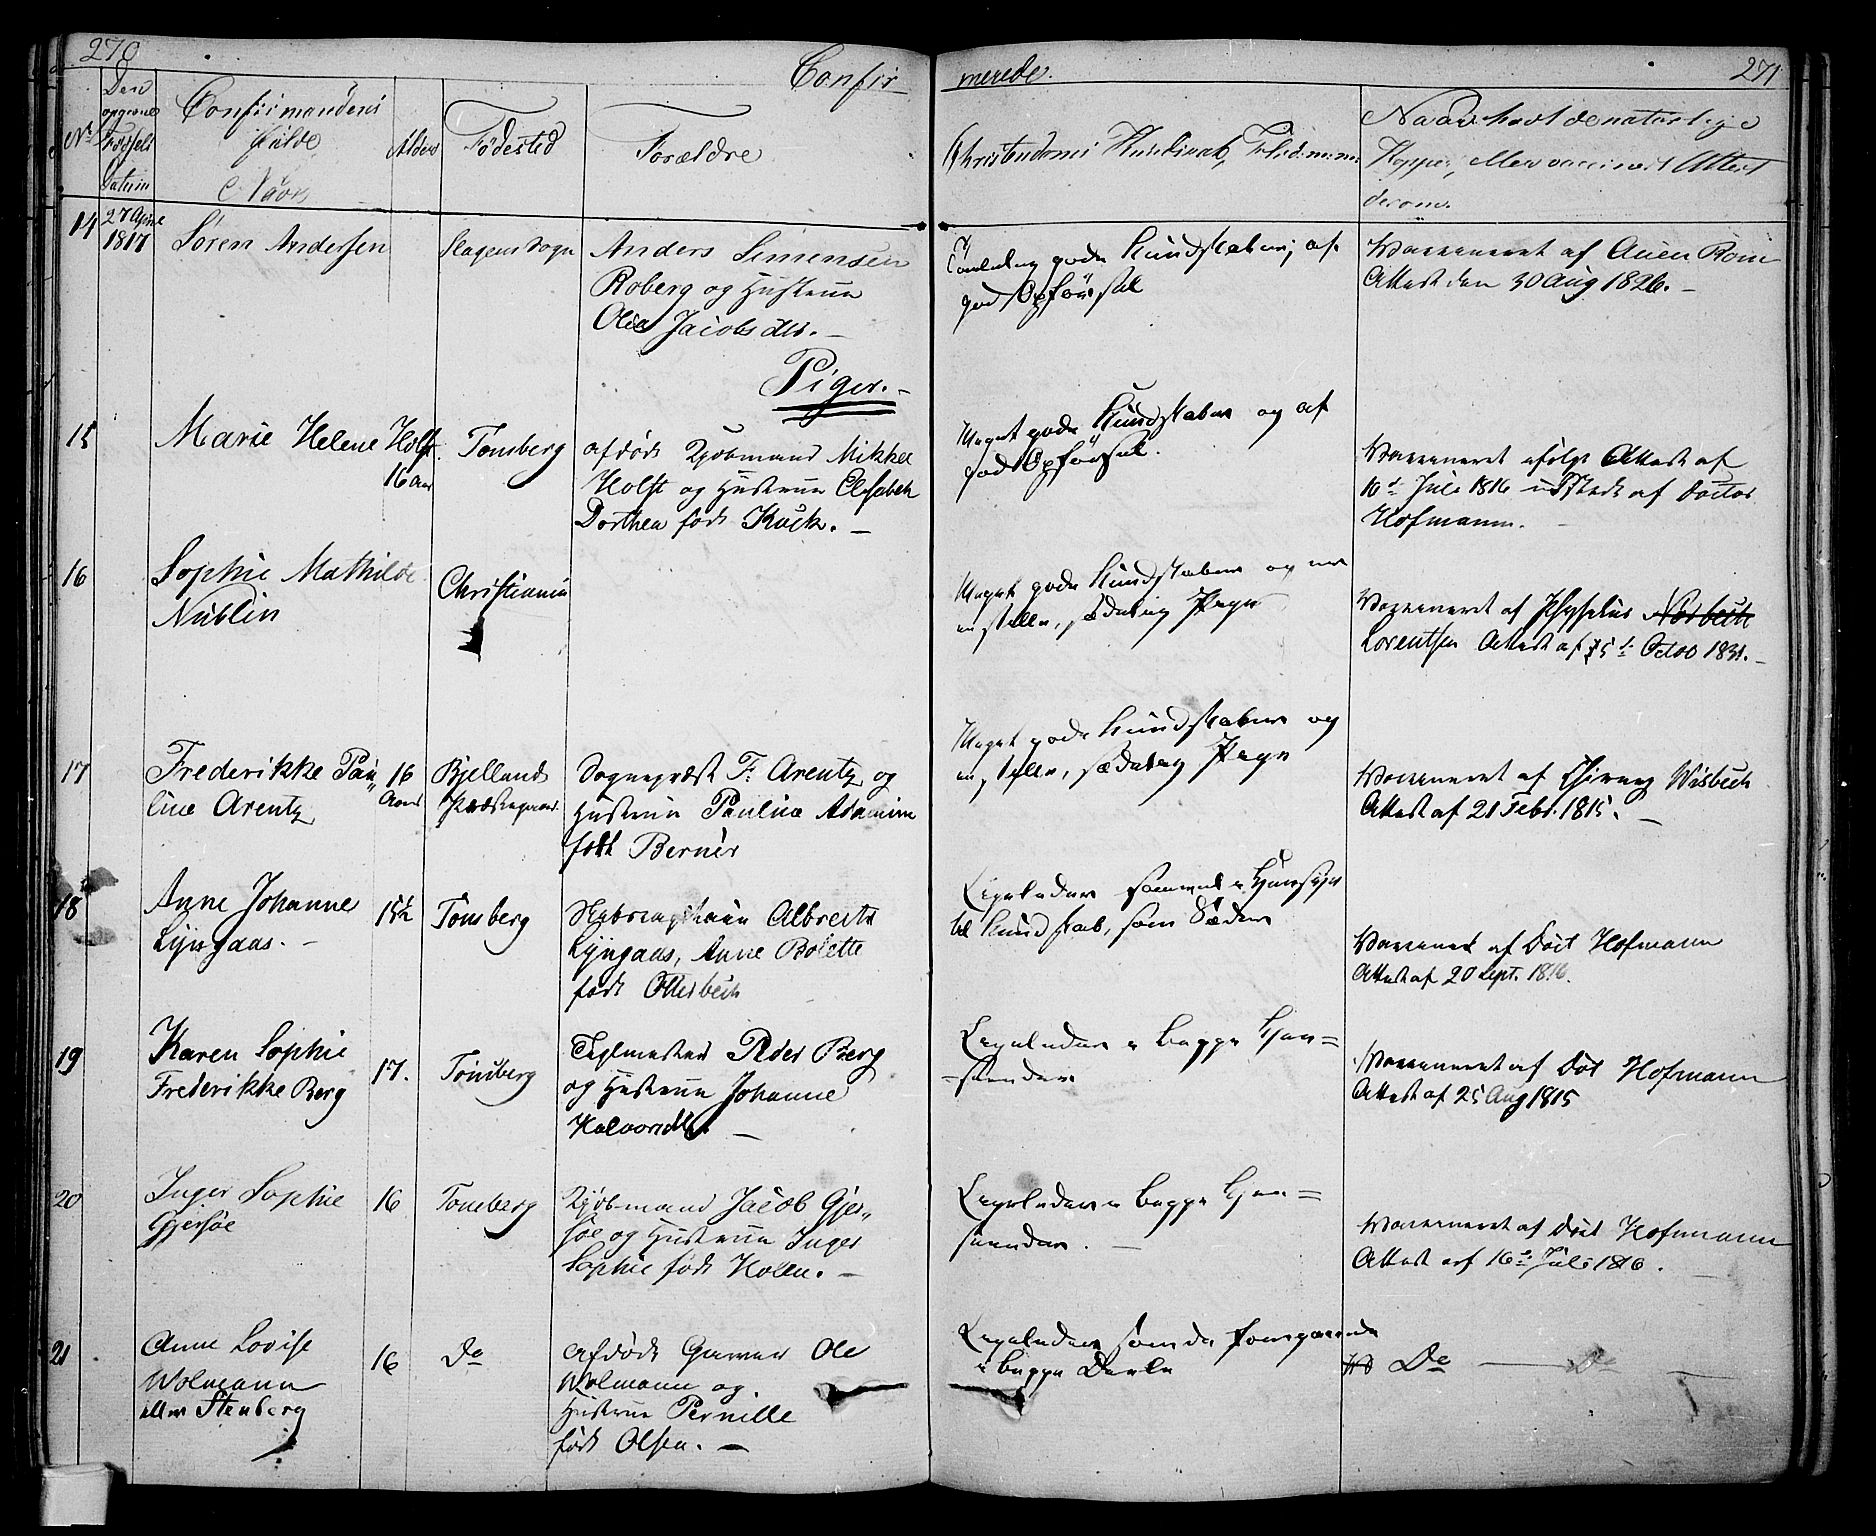 270
Confir-
merede.
271
No
Den
opgivne
Fødsels
Datum
Confirmandens
fulde
Navn
Alder
Fødested
Forældre
Christendoms Kundskab,
Naar havt de naturlige
Kopper, eller vaccineret Attest
derom.
14
27 April
1817
Søren Andersen
Slagens Sogn
Anders Simensen
Roberg og Hustrue
Olea Jacobsdtr. -
Temmelig gode Kundskaber; af
god Opførsel
Vaccineret af
Attest den 30 Aug 1826. -
Piger. -
15
Marie Helene Holst
16 Aar
Tønsberg
afdøde Kjøbmand Mikkel
Holst og Hustrue Elisabeth
Dorthea født Kück. -
Meget gode Kundskaber og af
god Opførsel.
Vaccineret ifølge Attest af
16de Juli 1816 udstædt af Doctor
Hofmann. -
16
Sophie Mathilde
Nüblin
Christiania
Meget gode Kundskaber og en
stille, sædelig Pige
Vaccineret af Physikus Norbech
Lorentsen Attest af 15de Octob 1831. -
17
Frederikke Pau„
line Arentz
16
Aar
Bjelland
Præstegaard
Sognepræst F. Arentz og
Hustrue Pauline Adamine
født Berner
Meget gode Kundskaber og
en stille, sædelig Pige
Vaccineret af Chirurg Wisbech
Attest af 21 Febr. 1815. -
18
Anne Johanne
Lyngaas. -
15½
Tønsberg
Albrecht
Lyngaas, Anne Bolette
født Otterbech
Ligeledes saavel i Hensyn
til Kundskab, som Sæder
Vaccineret af Doct Hofmann
Attest af 20 Sept. 1816.
19
Karen Sophie
Frederikke Berg
17.
Tønsberg
Teglmester Peder Berg
og Hustrue Johanne
Halvorsdtr. -
Ligeledes i begge Hen=
=seender
Vaccineret af Doct Hofmann
Attest af 25 Aug 1815
20
Inger Sophie
Gjersøe
16
Tønsberg
Kjøbmand Jacob Gjer„
søe og Hustrue Inger
Sophie født Holm. -
Ligeledes i begge Hen=
seender. -
Vaccineret af Doct Hofmann
Attest af 16de Juli 1816.
21
Anne Lovise
Wolmann
eller Stenberg
16
Do
Afdøde Garver Ole
Wolmann og
Hustrue Pernille
født Olsen. -
Ligeledes som de foregaaende
i begge Deele
Do - Do